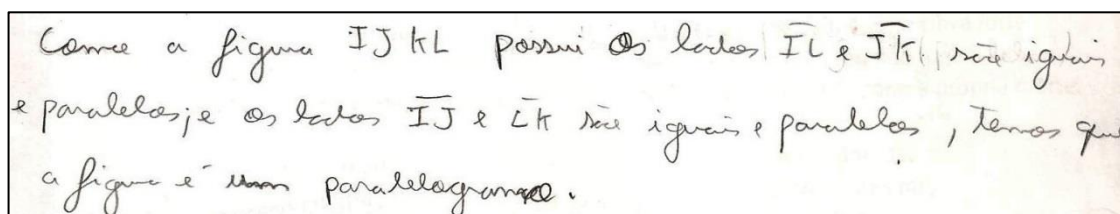 Como a figura IJKL possui os lados I̅L̅ e J̅K̅, são iguais
e paralelos; e os lados I̅J̅ e L̅K̅ são iguais e paralelos, temos que
a figura é um paralelogramo.